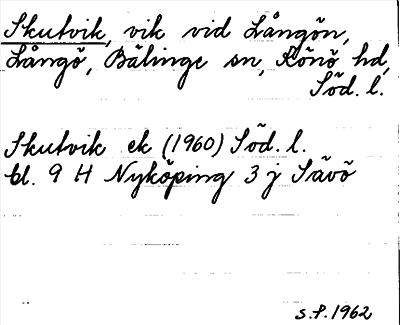 Skutvik, vik vid Långön,
Långö, Bälinge sn, Rönö hd,
Söd. l.
Skutvik ek (1960) Söd. l.
bl. 9 H Nyköping 3 j Sävö
S.P. 1962